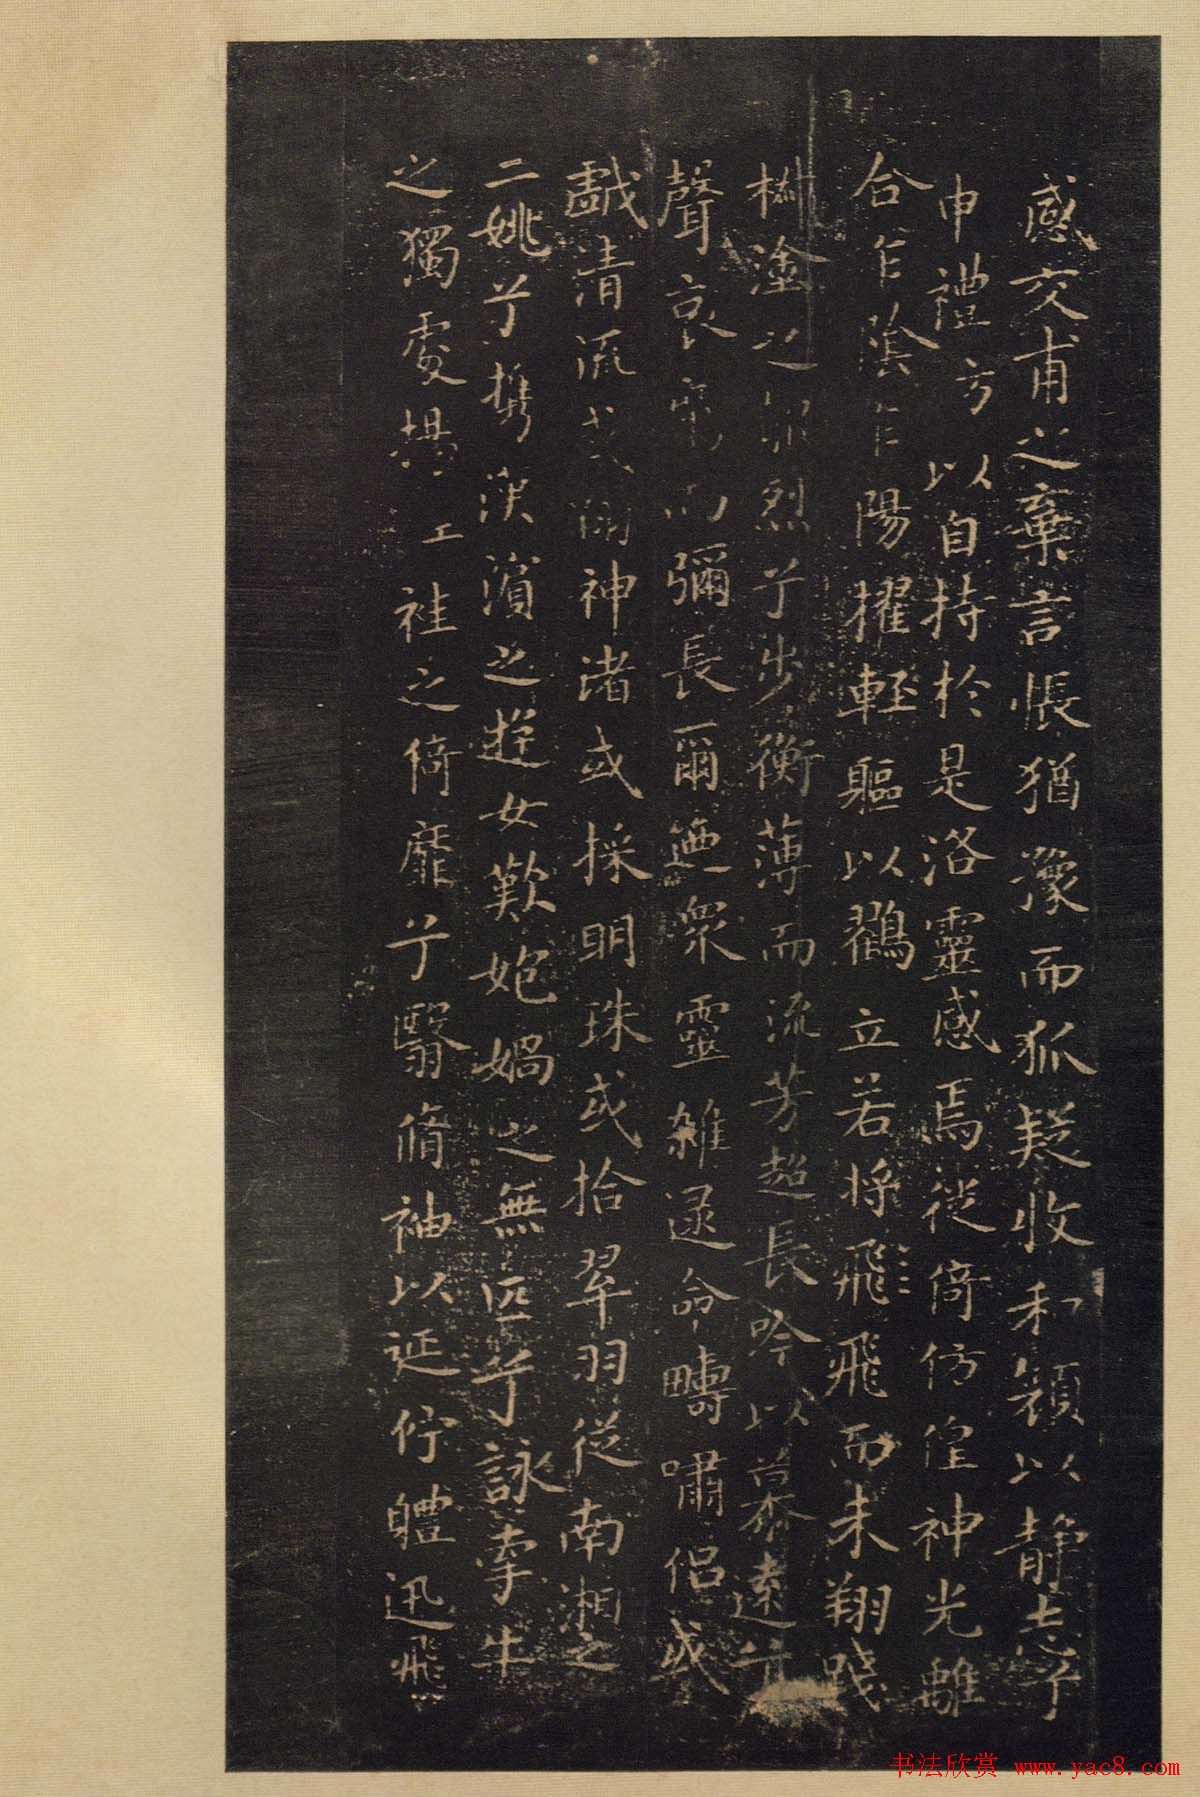 感交甫之棄言悵猶豫而狐疑收和顏以靜志兮
申禮方以自持於是洛靈感焉徙倚仿偟神光離
合乍陰乍陽擢輕軀以鶴立若将飛飛而未翔踐
椒塗之郁烈兮步衡薄而流芳超長吟以慕遠兮
聲哀厲而彌長爾迺眾靈雜遝命疇嘯侶或
戲清流或翔神渚或採明珠或拾翠羽從南湘之
二姚兮攜漢濱之遊女歎㚿媧之無匹兮詠牽牛
之獨處揚工袿之倚靡兮翳脩袖以延佇體迅飛
书法欣赏 www.yac8.com